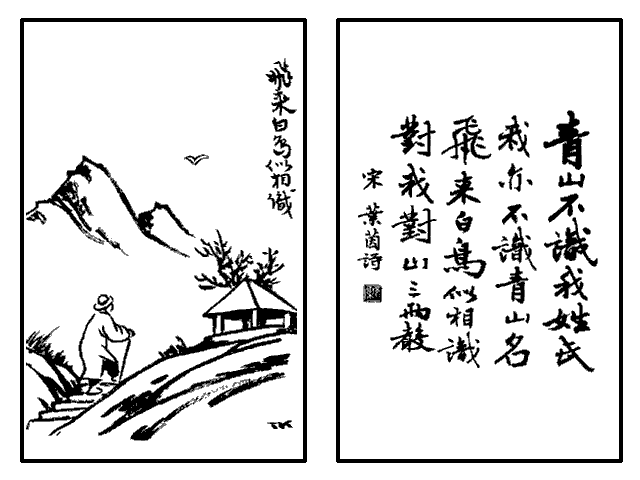 飛来白鳥似相識
TK
青山不識我姓氏
我亦不識青山名
飛来白鳥似相識
對我對山三兩聲
宋 葉茵詩